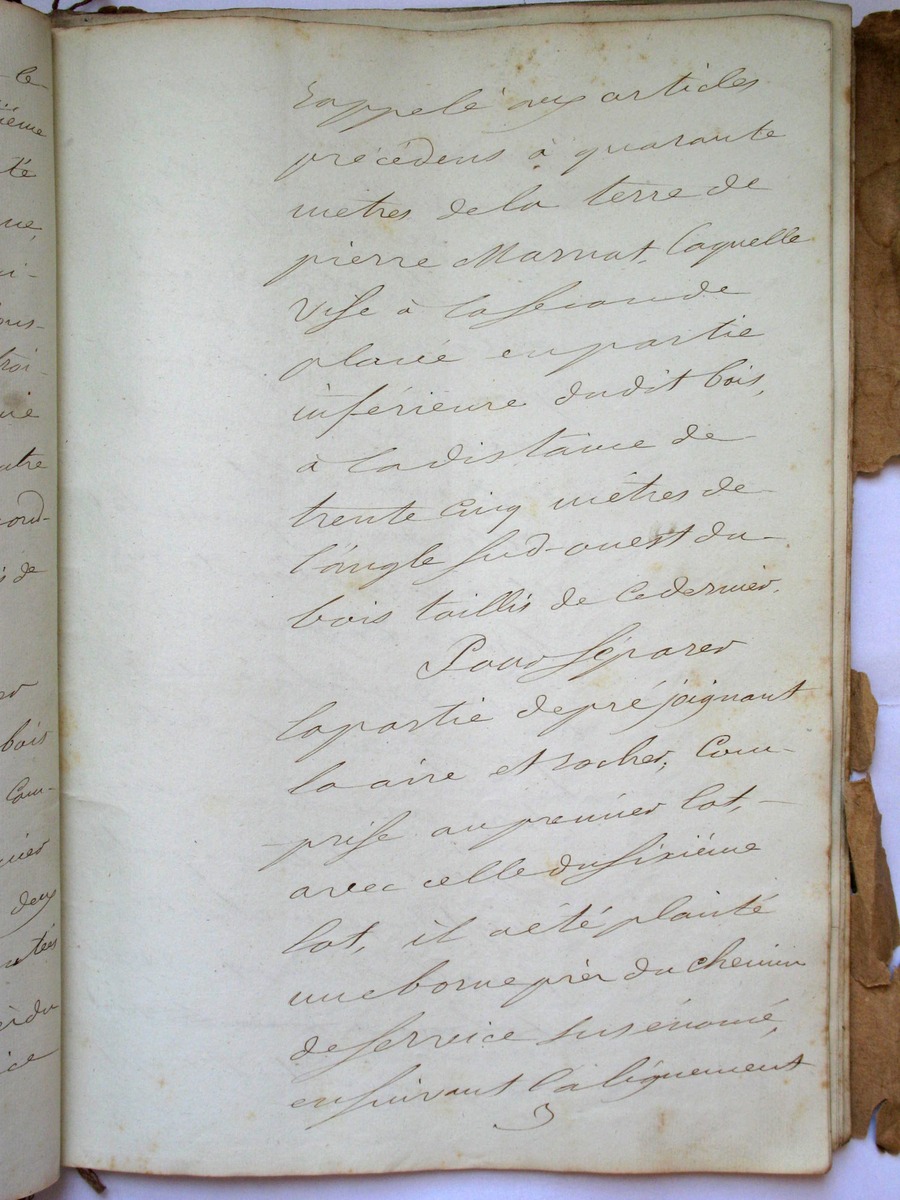 le
ième
té
ue,
ui-
ous-
troi-
uie
autre
cond-
s de
bois
Com-
deux
ntées
ice
rappelé aux articles
précédens à quarante
mètres de la terre de
pierre Marnat, laquelle
vise à la seconde
placée en partie
inférieure dudit bois,
à la distance de
trente cinq mètres de
l'angle sud-ouest du
bois taillis de ce dernier.
Pour séparer
la partie de pré joignant
la aire et rocher, Com-
prise au premier lot,
avec celle du sixième
lot, il a été planté
une borne près du chemin
de service susénoncé,
en suivant l'alignement